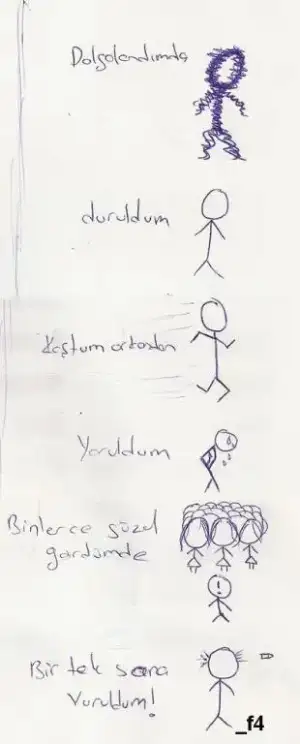 Dalgalandımda
duruldum
Koştum ortadan
Yoruldum
Binlerce güzel
gördümde
Bir tek sana
Vuruldum!
_f4